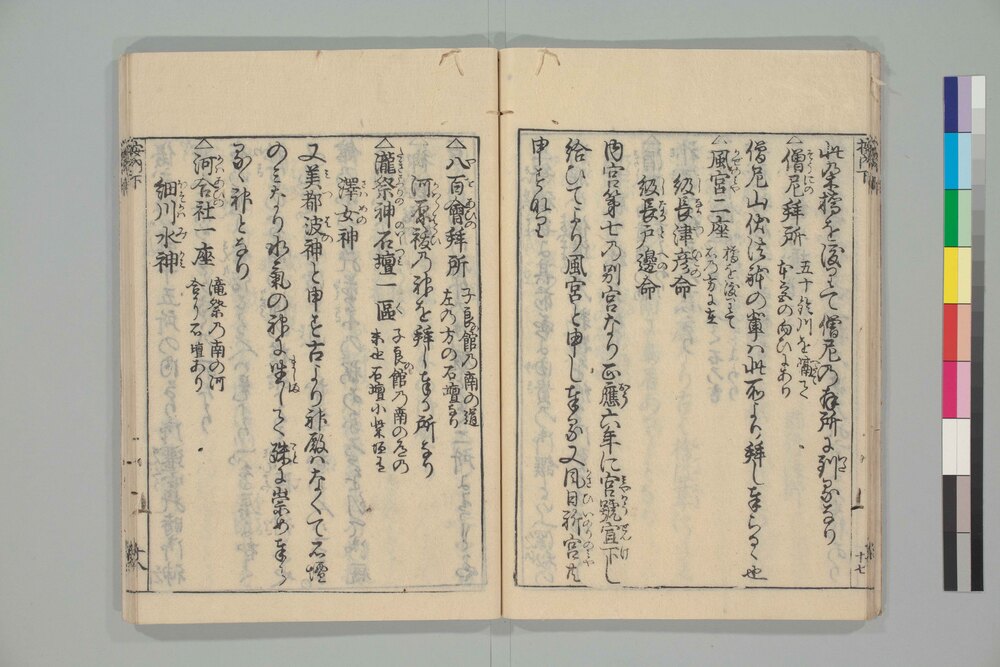 此風宮橋を渡りて僧尼の拝所に到るなり
△僧尼拝所 五十鈴川を隔てゝ
本宮の向ひにあり
僧尼山伏法躰の輩ハ此所より拝し奉らるゝ也
△風宮二座 橋を渡りて
右の方に在
級長津彦命
級長戸邊命
内宮第七の別宮なり正應六年に宮號宣下し
給ひてより風宮と申し奉る又風日祈宮共
申すなり
十七
△八百會拜所 子良館の南の道
左の方の石壇なり
河原祓の神を拜し奉る所なり
△瀧祭神石壇一區 子良館の南の道の
末也石壇小柴垣有
澤女神
又美都波神と申す古より神殿ハなくて石壇
のミなり水氣の神に坐して殊に崇め奉る
るゝ神となり
△河合社一座 滝祭の南の河
合なり石壇あり
細川水神